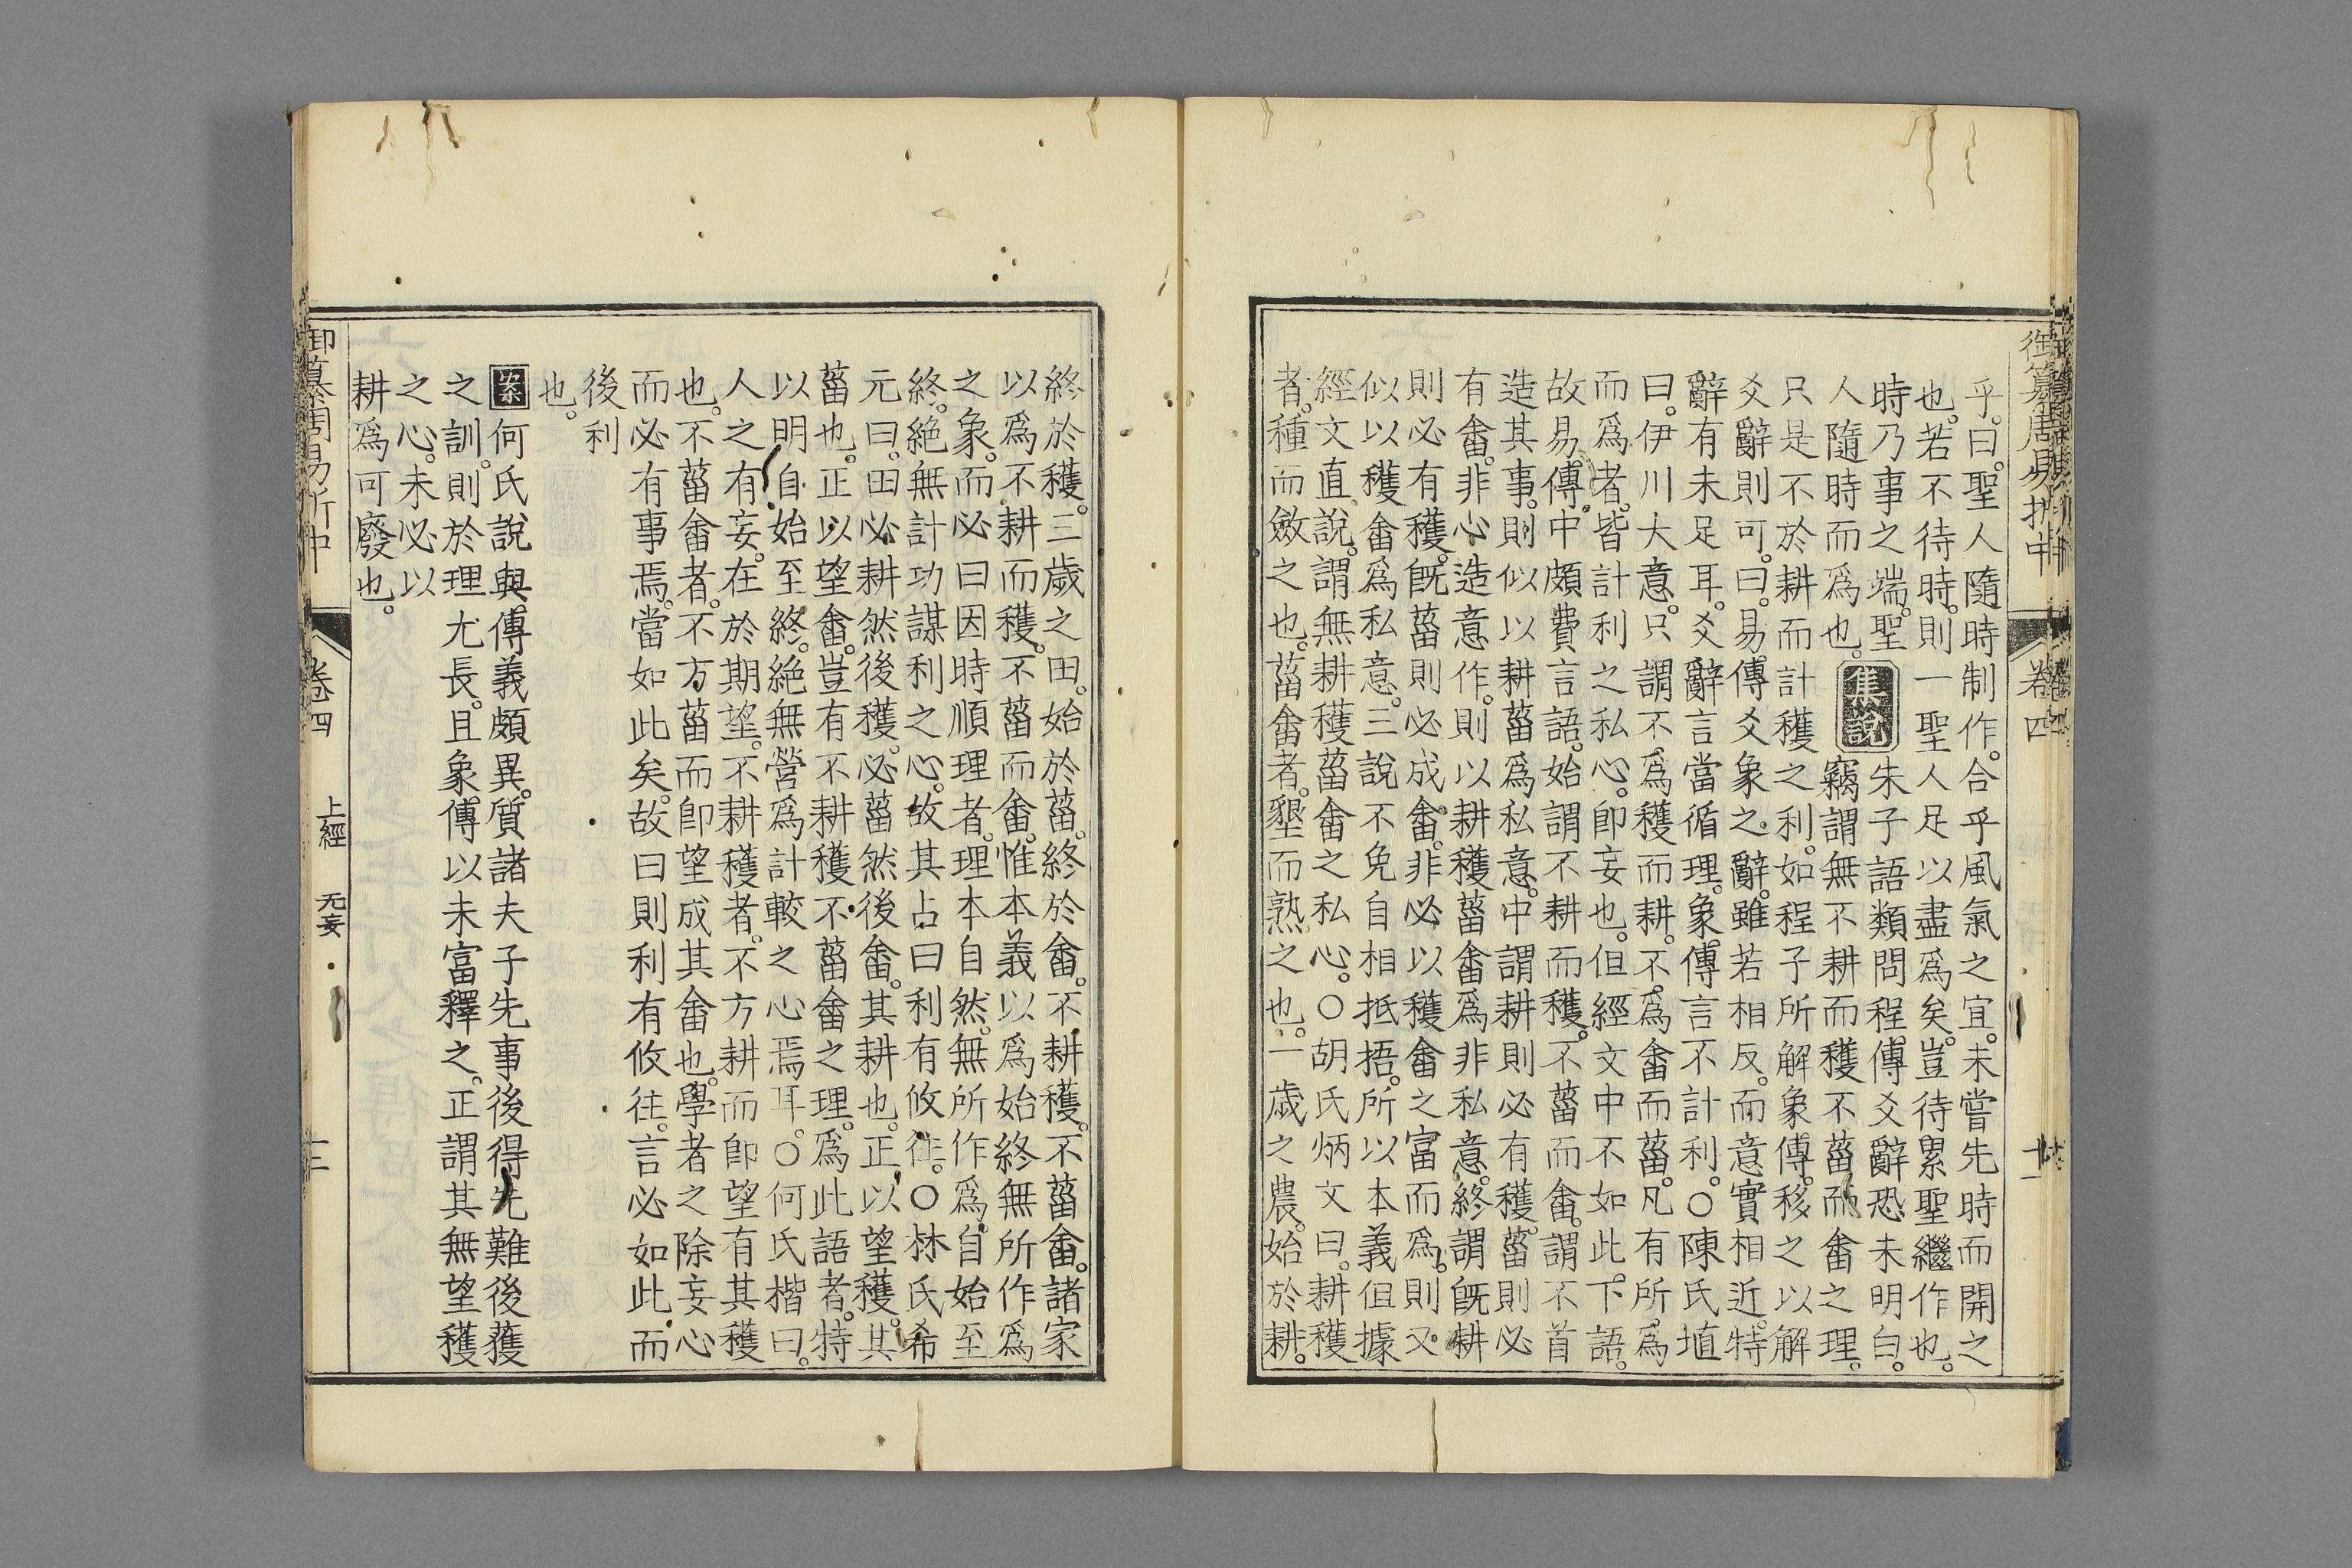 御纂周易折中 卷四
乎。曰。聖人隨時制作。合乎風氣之宜。未嘗先時而開之
也。若不待時。則一聖人足以盡爲矣。豈待累聖繼作也。
時乃事之端。聖
人隨時而爲也。
集說
朱子語類問程傳爻辭恐未明白。
竊謂無不耕而穫不菑而畬之理。
只是不於耕而計穫之利。如程子所解象傳。移之以解
爻辭則可。曰。易傳爻象之辭。雖若相反。而意實相近。特
辭有未足耳。爻辭言當循理。象傳言不計利。○陳氏埴
曰。伊川大意。只謂不爲穫而耕。不爲畬而菑。凡有所爲
而爲者。皆計利之私心。卽妄也。但經文中不如此下語。
故易傳中頗費言語。始謂不耕而穫。不菑而畬。謂不首
造其事。則似以耕菑爲私意。中謂耕則必有穫。菑則必
有畬。非心造意作。則以耕穫菑畬爲非私意。終謂旣耕
則必有穫。旣菑則必成畬。非必以穫畬之富而爲。則又
似以穫畬爲私意。三說不免自相抵捂。所以本義但據
經文直說。謂無耕穫菑畬之私心。○胡氏炳文曰。耕穫
者。種而斂之也。菑畬者。墾而熟之也。一歲之農。始於耕。
終於穫。三歲之田。始於菑。終於畬。不耕穫。不菑畬。諸家
以爲不耕而穫。不菑而畬。惟本義以爲始終無所作爲
之象。而必曰因時順理者。理本自然。無所作爲。自始至
終。絕無計功謀利之心。故其占曰利有攸往。○林氏希
元曰。田必耕然後穫。必菑然後畬。其耕也。正以望穫。其
菑也。正以望畬。豈有不耕穫不菑畬之理。爲此語者。特
以明自始至終。絕無營爲計較之心焉耳。○何氏楷曰。
人之有妄。在於期望。不耕穫者。不方耕而卽望有其穫
也。不菑畬者。不方菑而卽望成其畬也。學者之除妄心
而必有事焉。當如此矣。故曰則利有攸往。言必如此而
後利
也。
案 何氏說與傳義頗異。質諸夫子先事後得先難後獲
之訓。則於理尤長。且象傳以未富釋之。正謂其無望穫
之心。未必以
耕爲可廢也。
御纂周易折中 卷四 上經 无妄